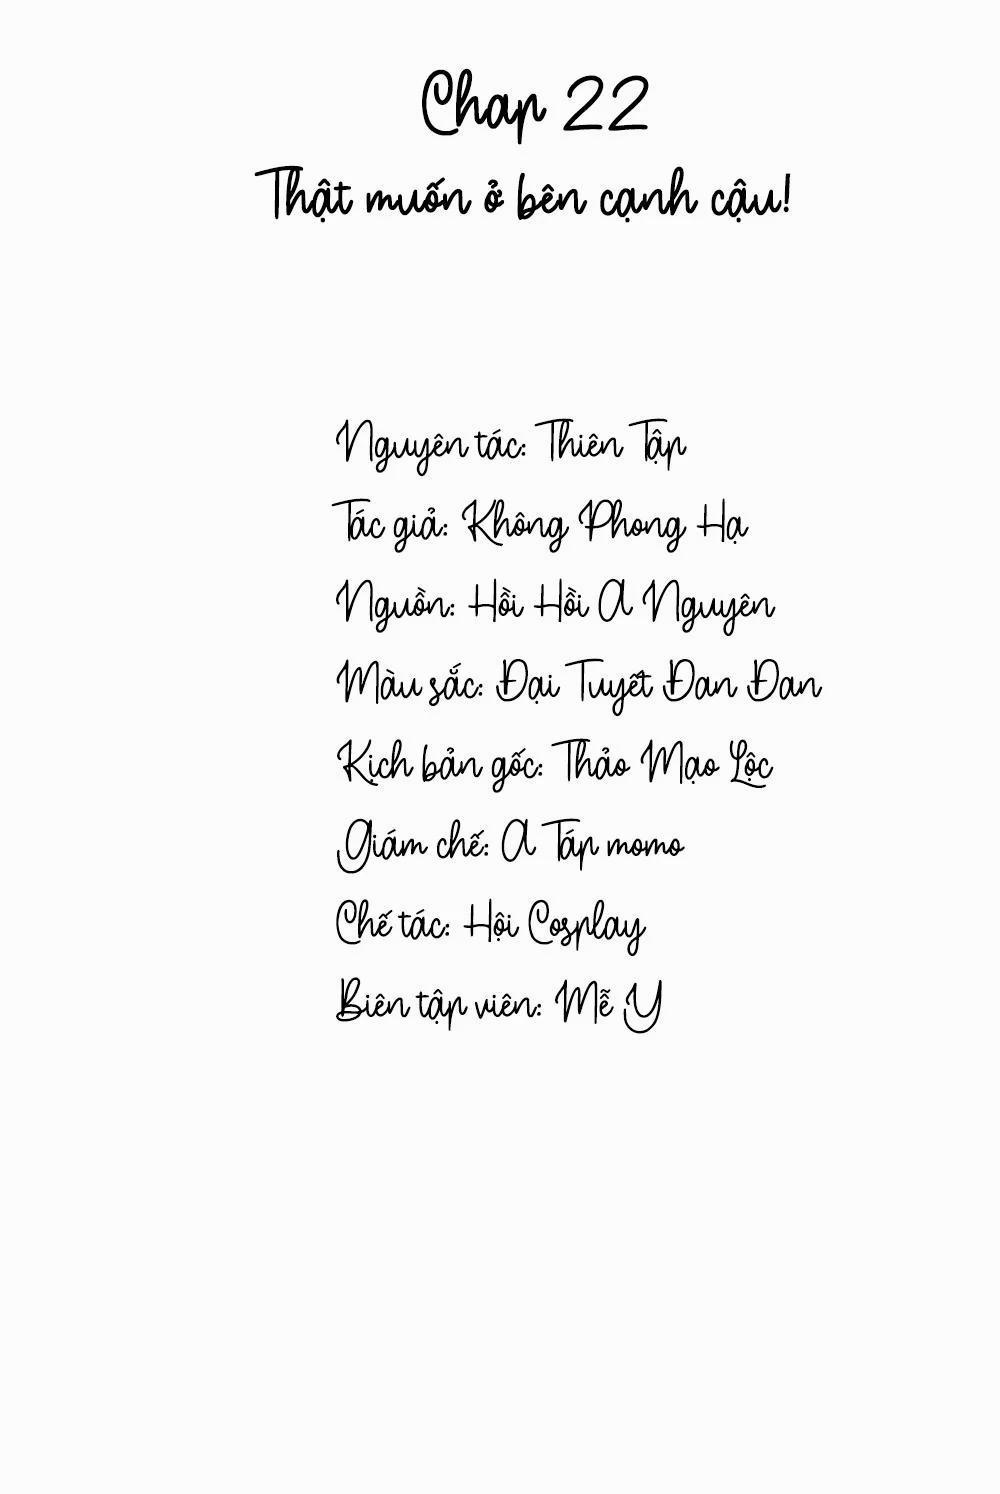 Chap 22
Thật muốn ở bên cạnh cậu!
Nguyên tác: Thiên Tập
Tác giả: Không Phong Hạ
Nguồn: Hồi Hồi A Nguyên
Màu sắc: Đại Tuyết Đan Đan
Kịch bản gốc: Thảo Mạo Lộc
Giám chế: A Táp momo
Chế tác: Hội Cosplay
Biên tập viên: Mễ Y